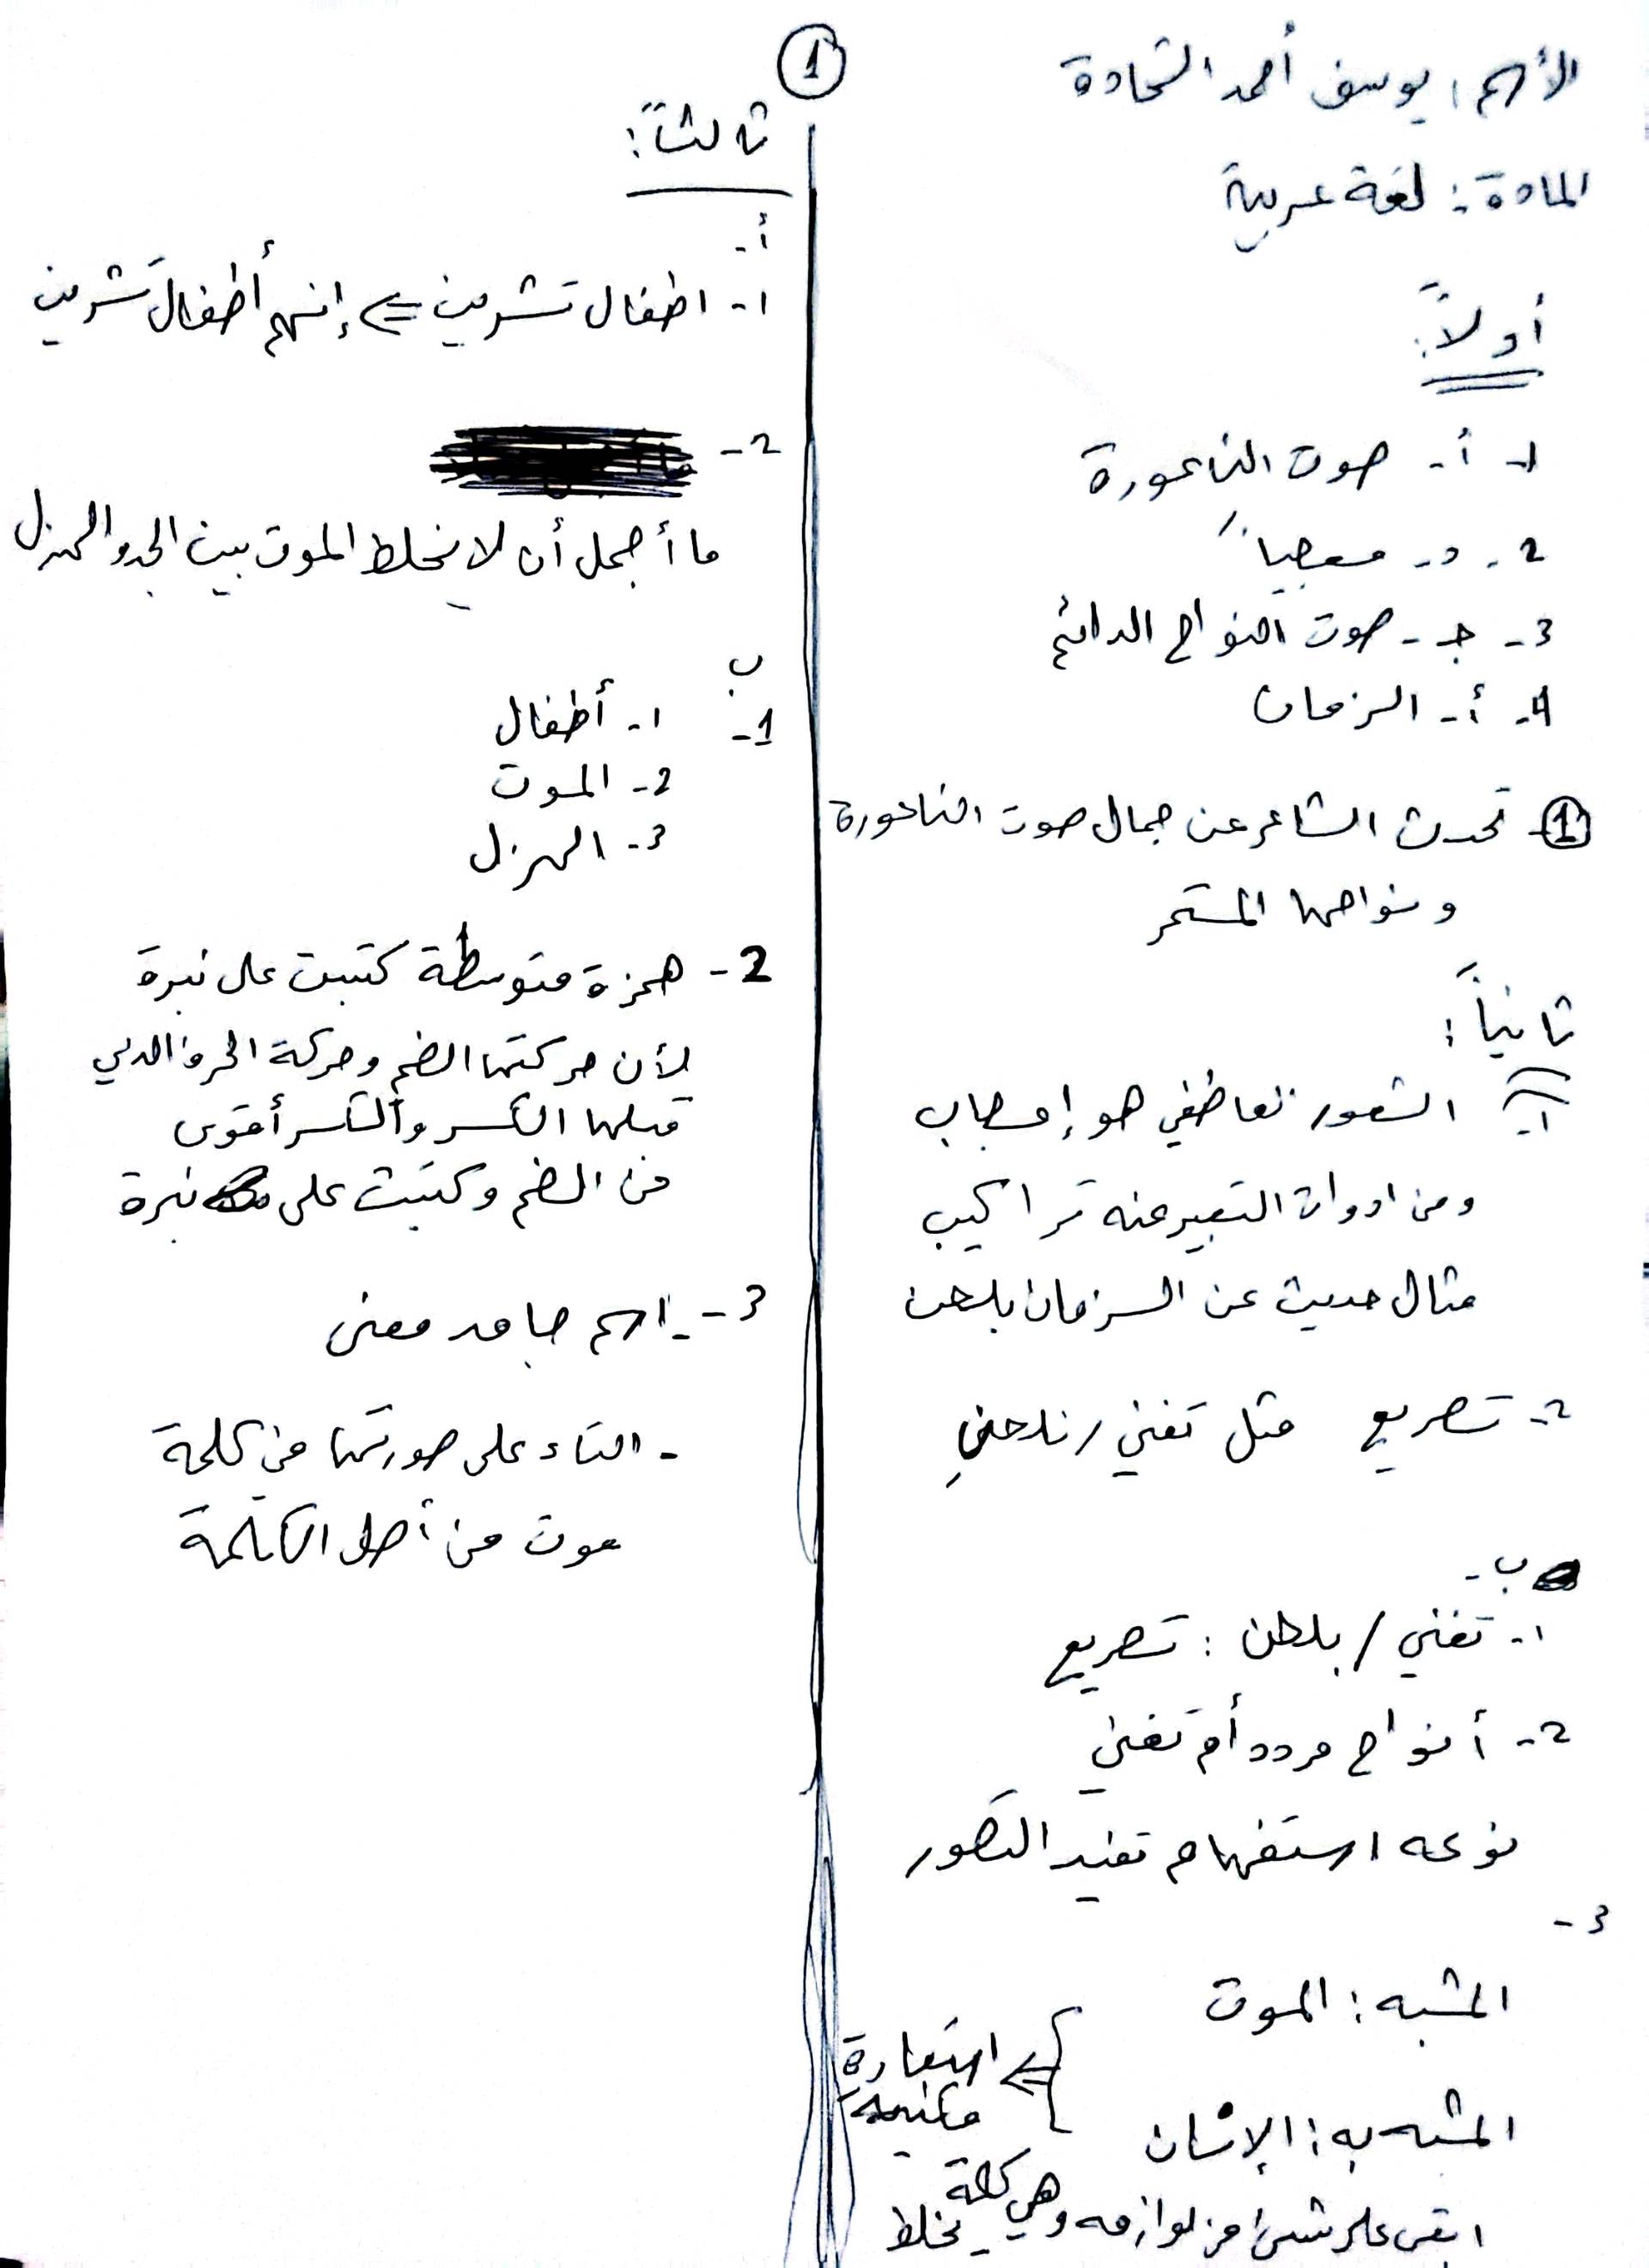 1
الأسم: يوسف أحمد الشحادة
المادة: لغة عربية
أولاً:
1- أ- صوت الناعورة
2- د- معجباً
3- جـ - صوت النواح الدائم
4- أ- الزمان
1- تحدث الشاعر عن جمال صوت الناعورة
ونواحها المستمر
ثانياً:
أ-
1- الشعور عاطفي هو إعجاب
ومن ادوات التعبير عنه تراكيب
مثال حديث عن الزمان بلحن
2- تصريع مثل تغني / بلحنِ
ب-
1- تغني / بلحن: تصريع
2- أنواح مردد أم تغني
نوعه استفهام تفيد التصور
3-
المشبه: الموت
المشبه به: الإنسان
استعارة
مكنية
ابقى على شيئ من لوازمه وهي كلمة يخلط
ثالثاً:
أ-
1- اطفال تشرين ⇐ إنهم أطفالُ تشرين
2-
ما أجمل أن لا يخلط الموت بين الجد والهزل
ب
1- 1- أطفال
2- الموت
3- الهزل
2- همزة متوسطة كتبت على نبرة
لأن حركتها الضم وحركة الحرف الذي
قبلها الكسر والكسر أقوى
من الضم وكتبت على نبرة
3- - اسم جامد معنى
- التاء على صورتها في كلمة
موت من أصل الكلمة